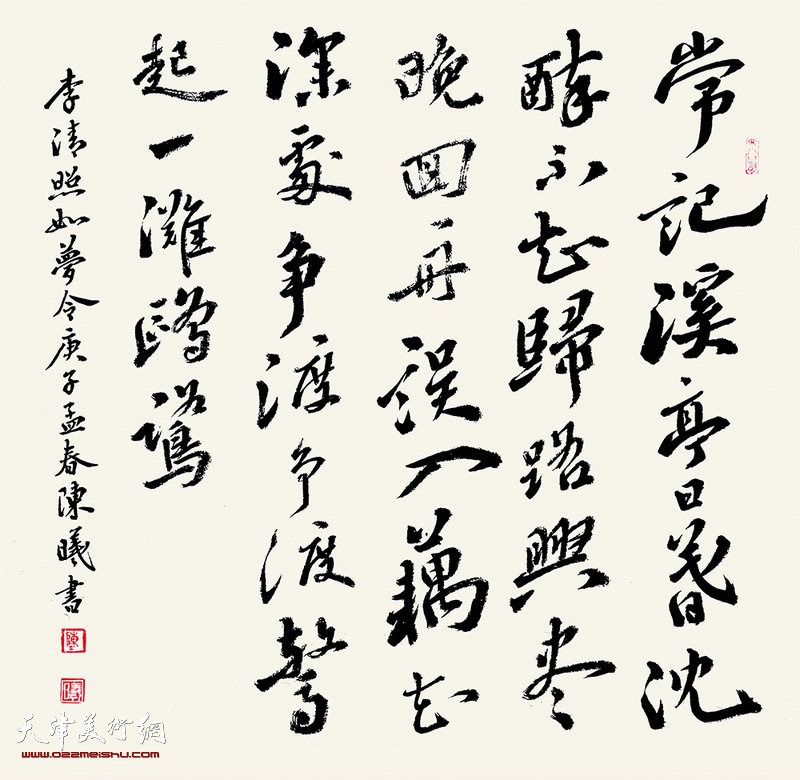 常記溪亭日暮沈
醉不知歸路興盡
晚回舟誤入藕花
深處争渡争渡驚
起一灘鷗鷺
李清照如夢令庚子孟春陳曦書
陳
曦
天津美術網
www.022meishu.com